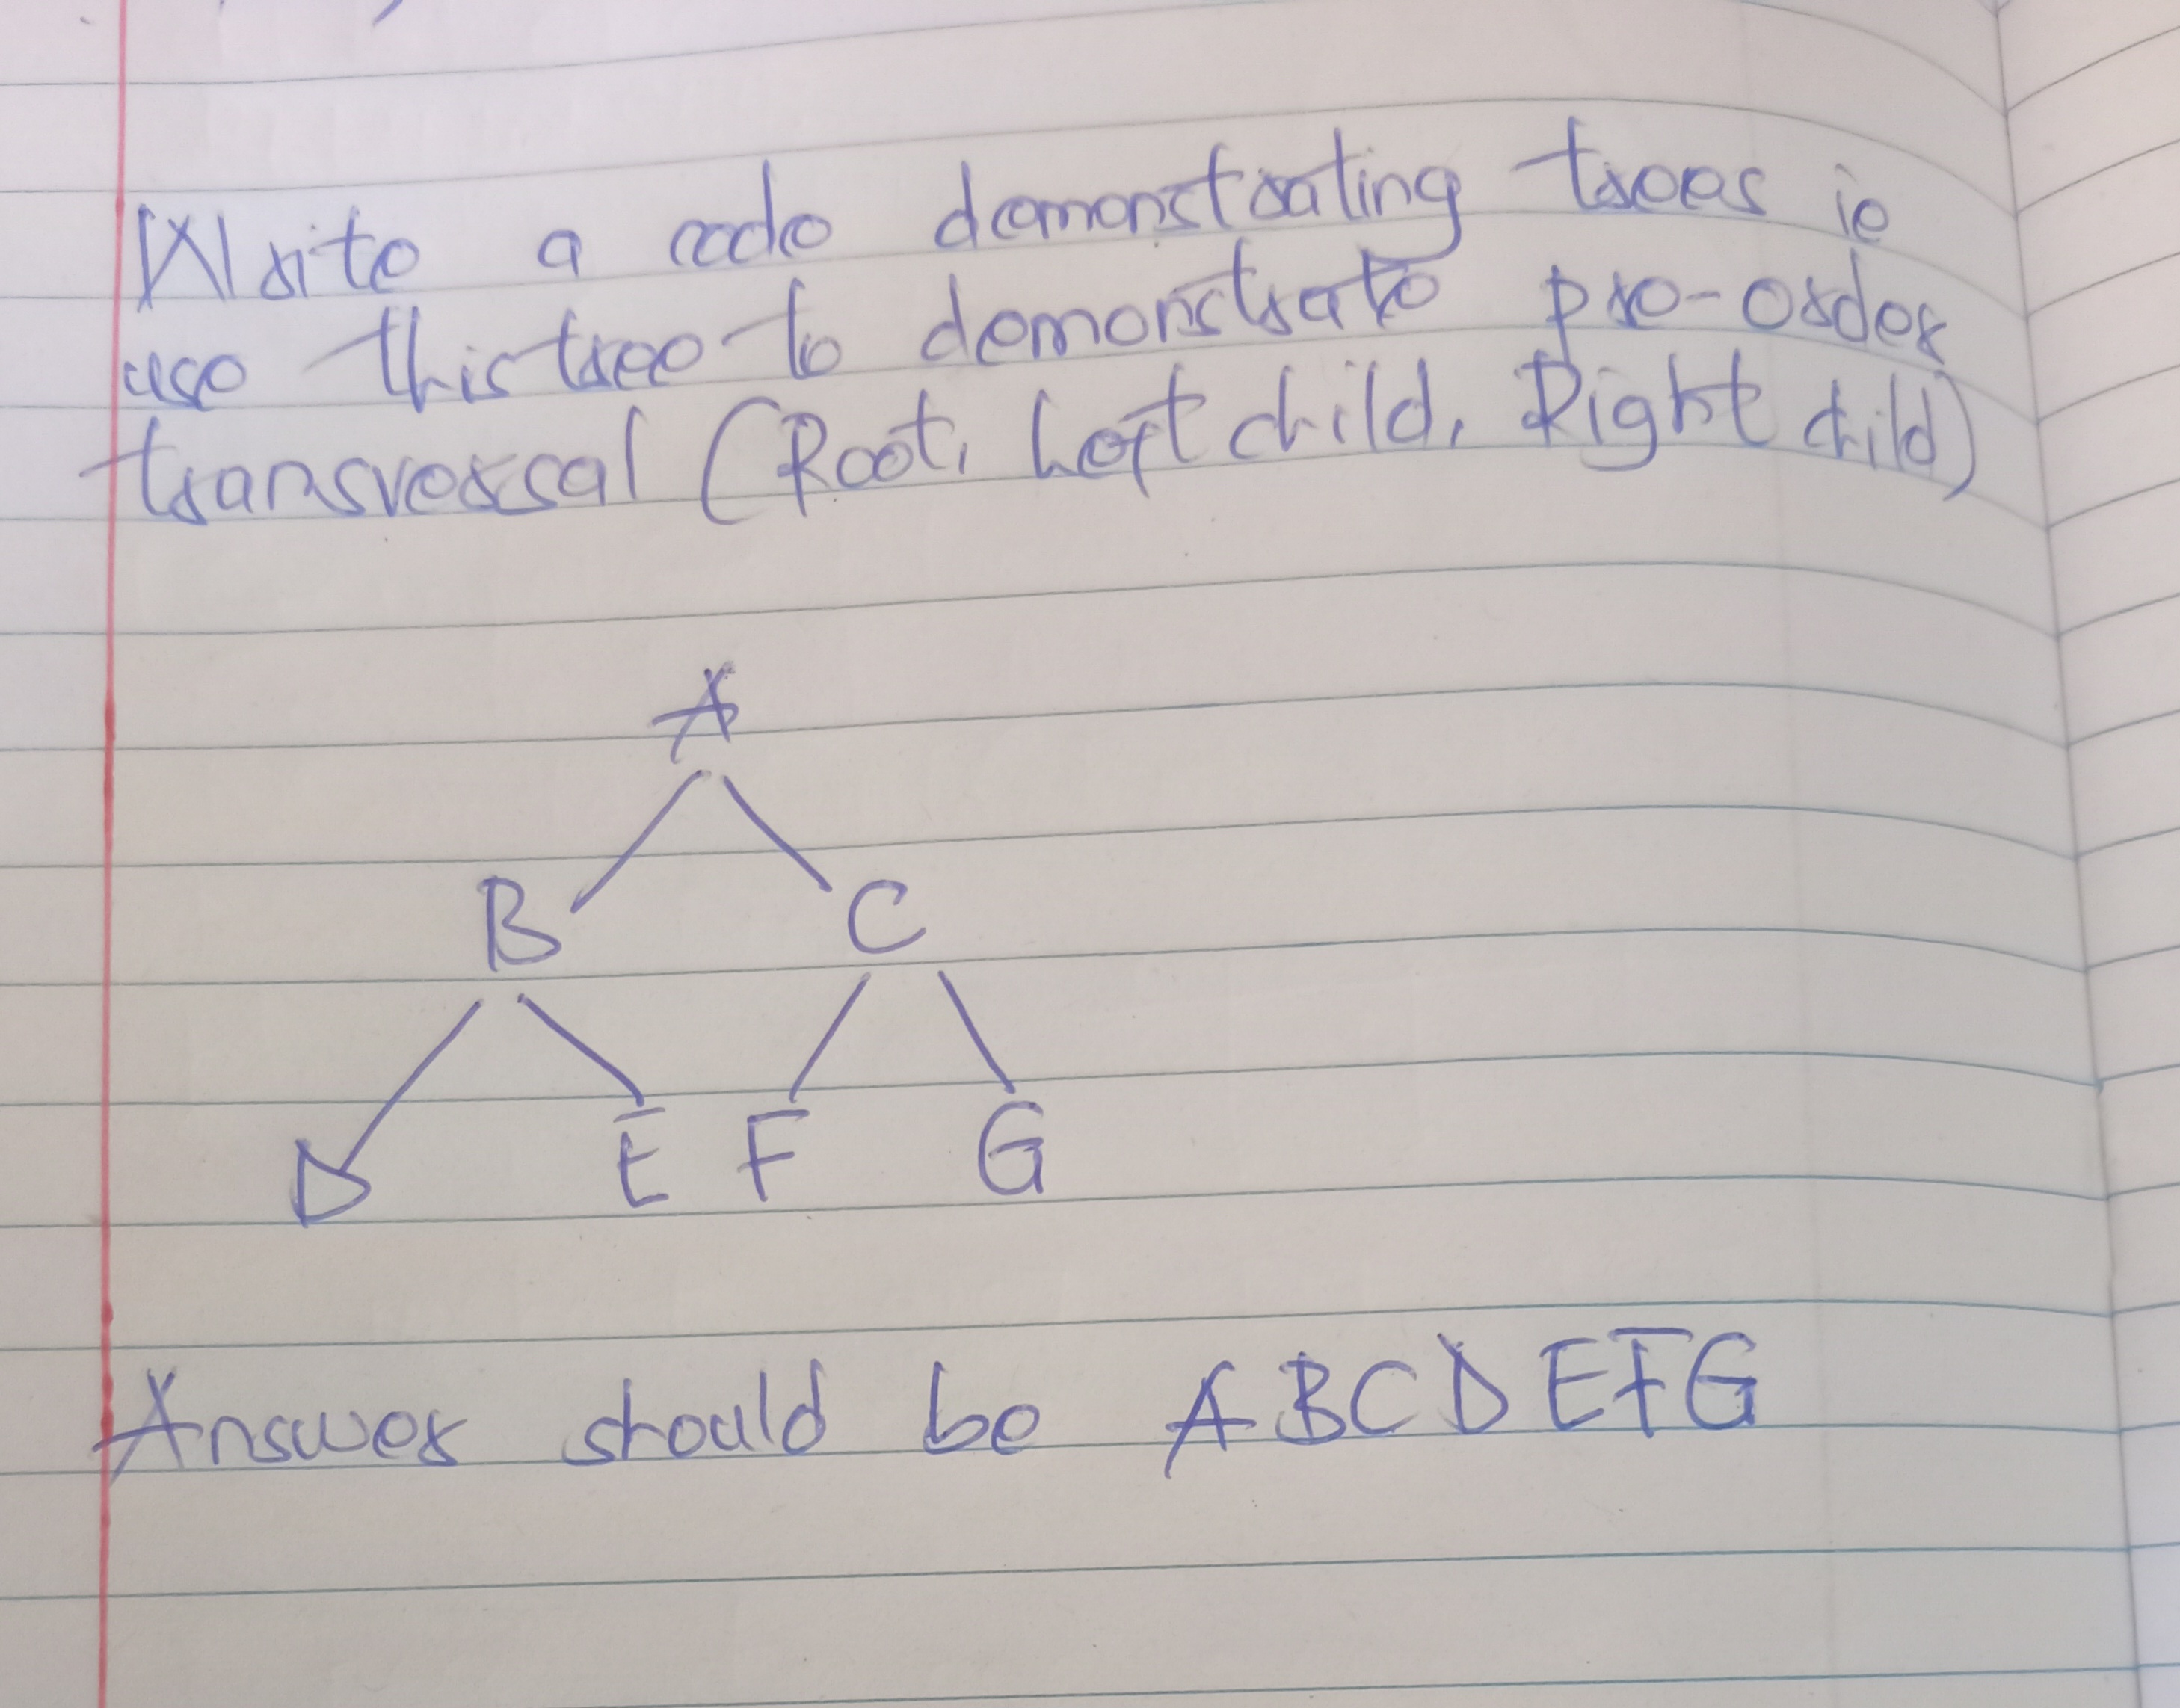 Write a code demonstrating trees ie
use this tree to demonstrate pre-order
transversal (Root, Left child, Right child)
A
B C
D E F G
Answer should be A B C D E F G